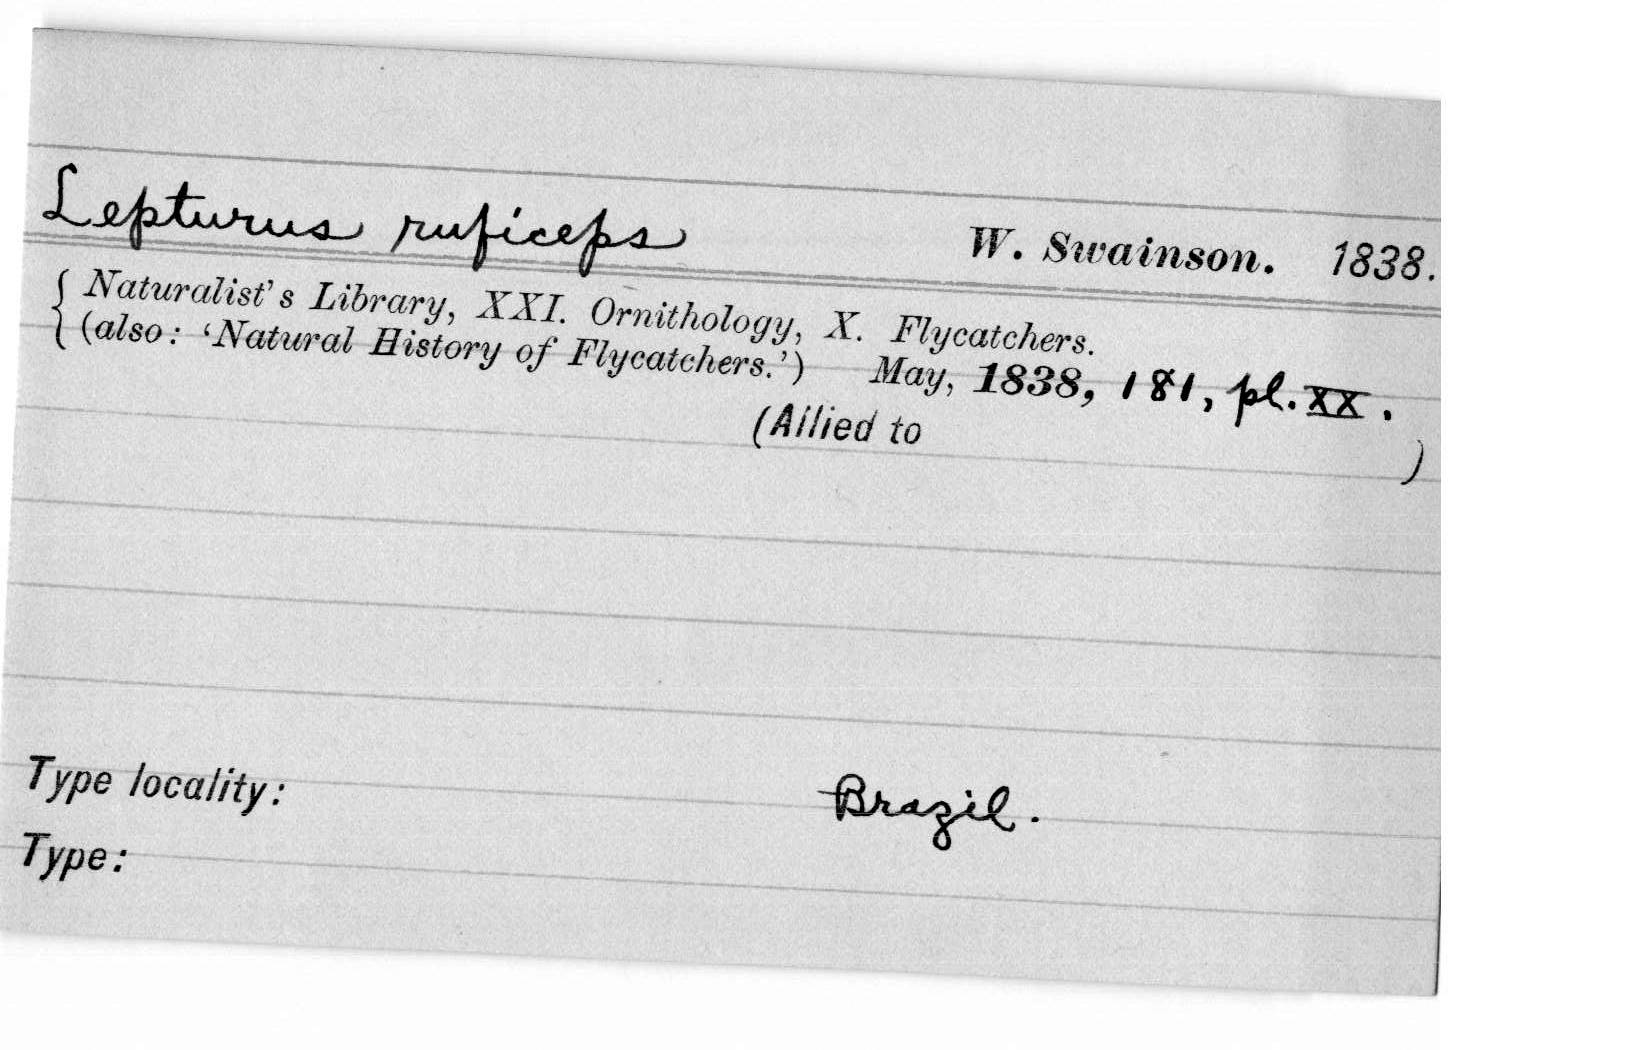 Lepturus ruficeps W. Swainson. 1838.
Naturalist's Library, XXI. Ornithology, X. Flycatchers.
(also: 'Natural History of Flycatchers.') May, 1838, 181, pl. XX.
(Allied to )
Type locality: Brazil.
Type: